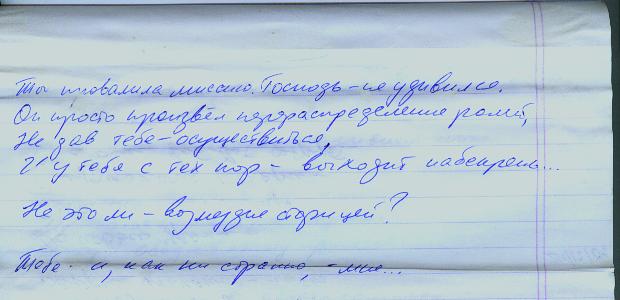 Ты провалила миссию. Господь – не удивился.
Он просто произвёл перераспределение ролей,
Не дав тебе – осуществиться,
И у тебя с тех пор – выходит набекрень...
Не это ли – возмездие сторицей?
Тебе и, как ни странно, – мне...